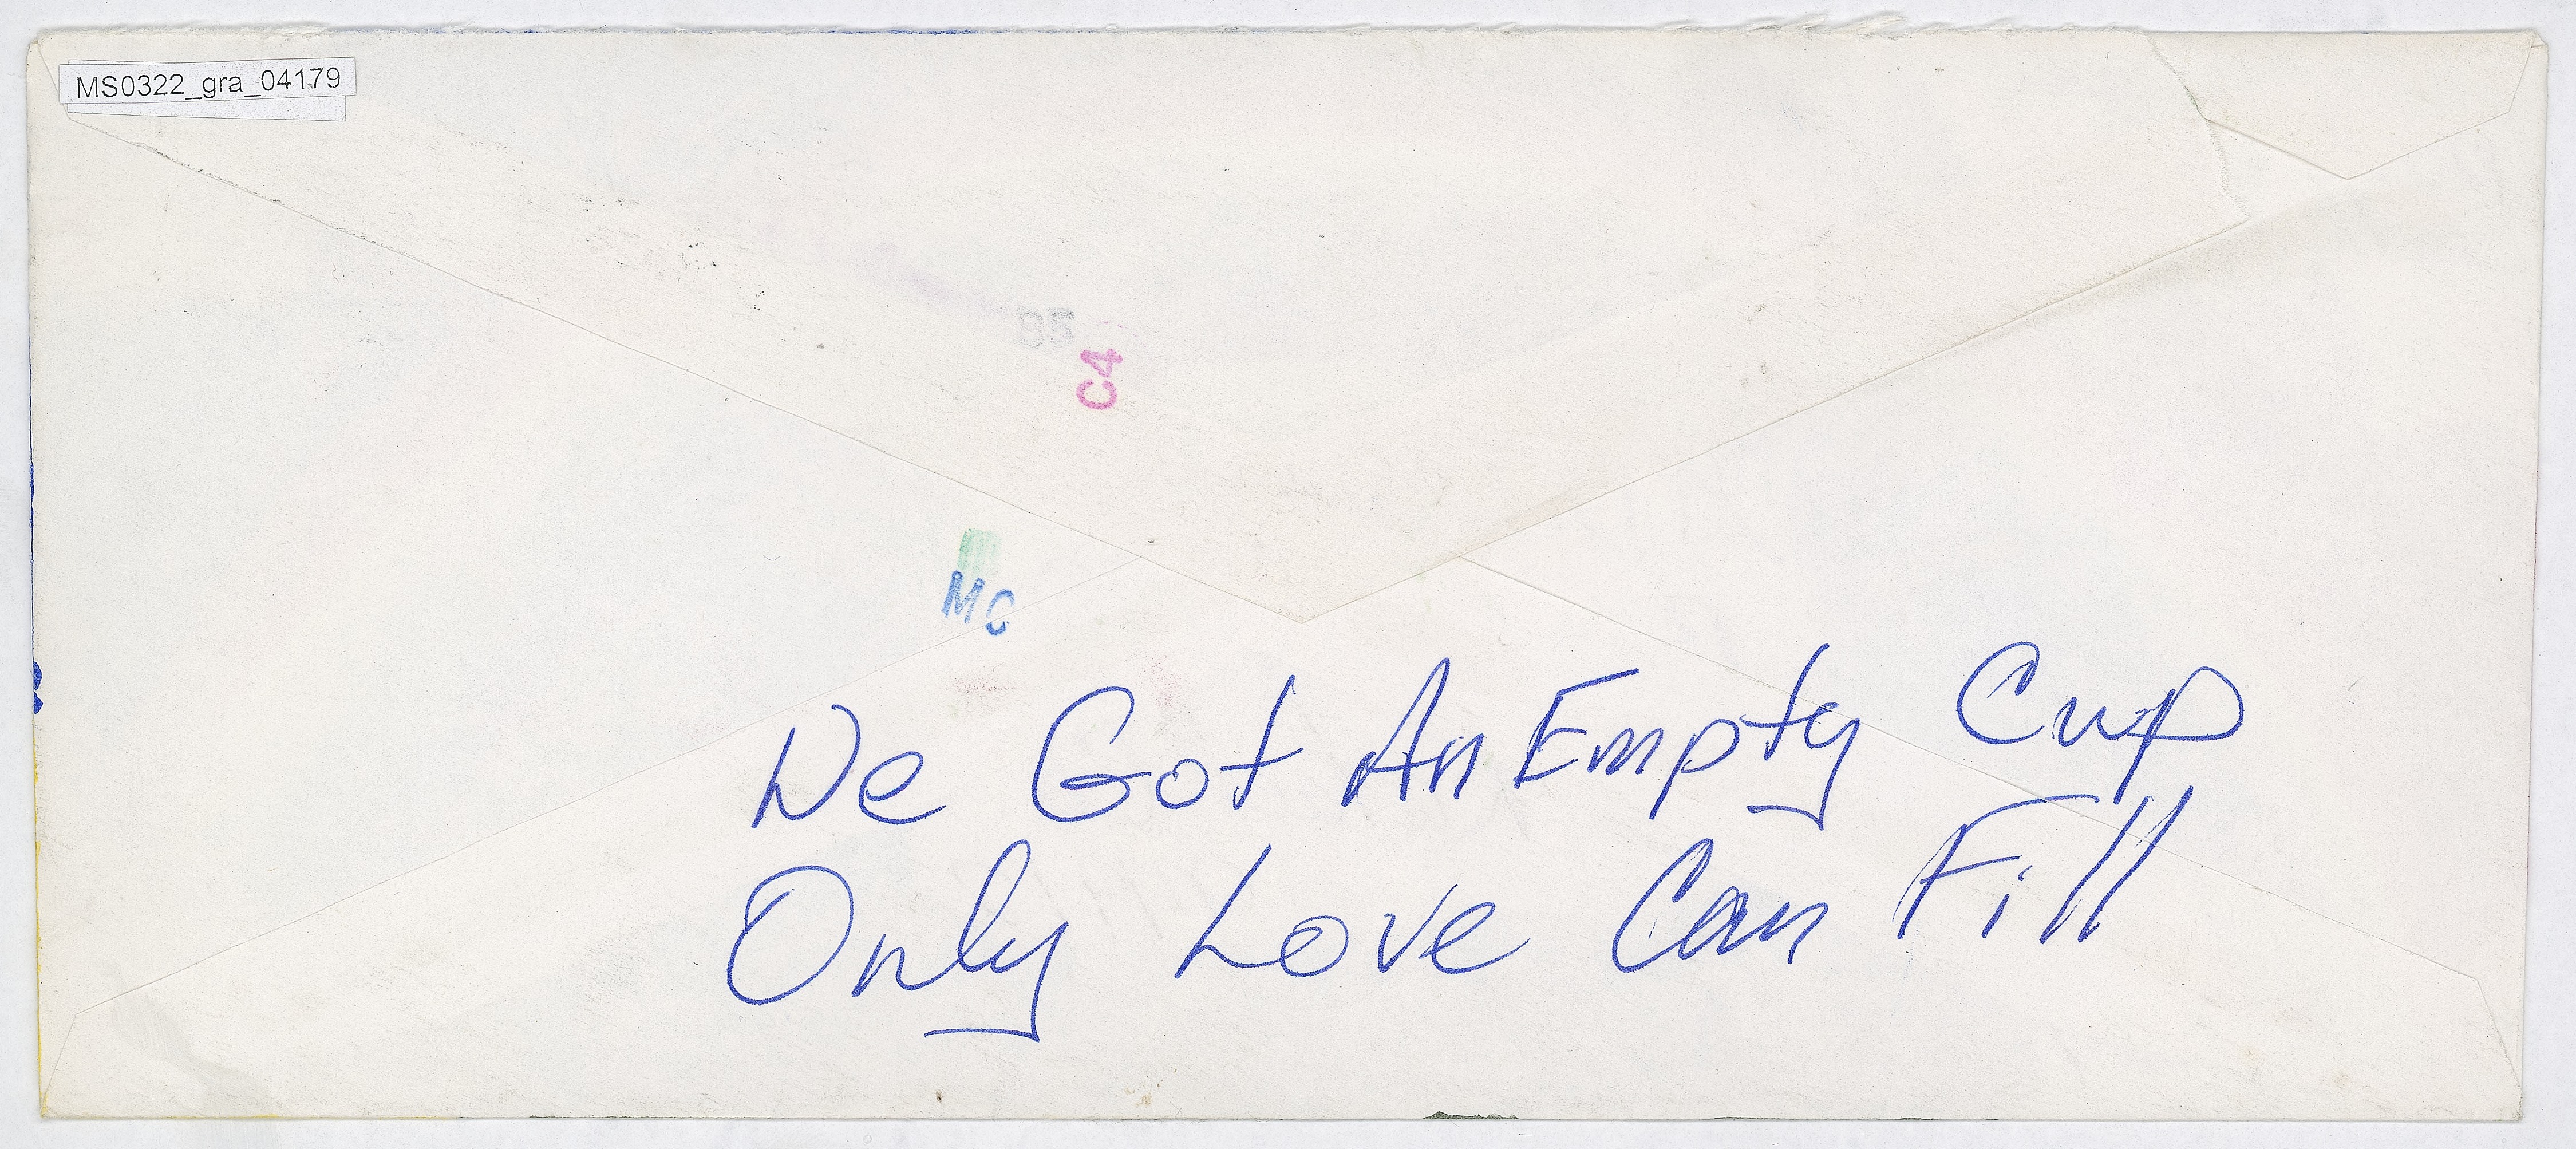 MS0322_gra_04179
C4
MC
We Got An Empty Cup
Only Love Can Fill